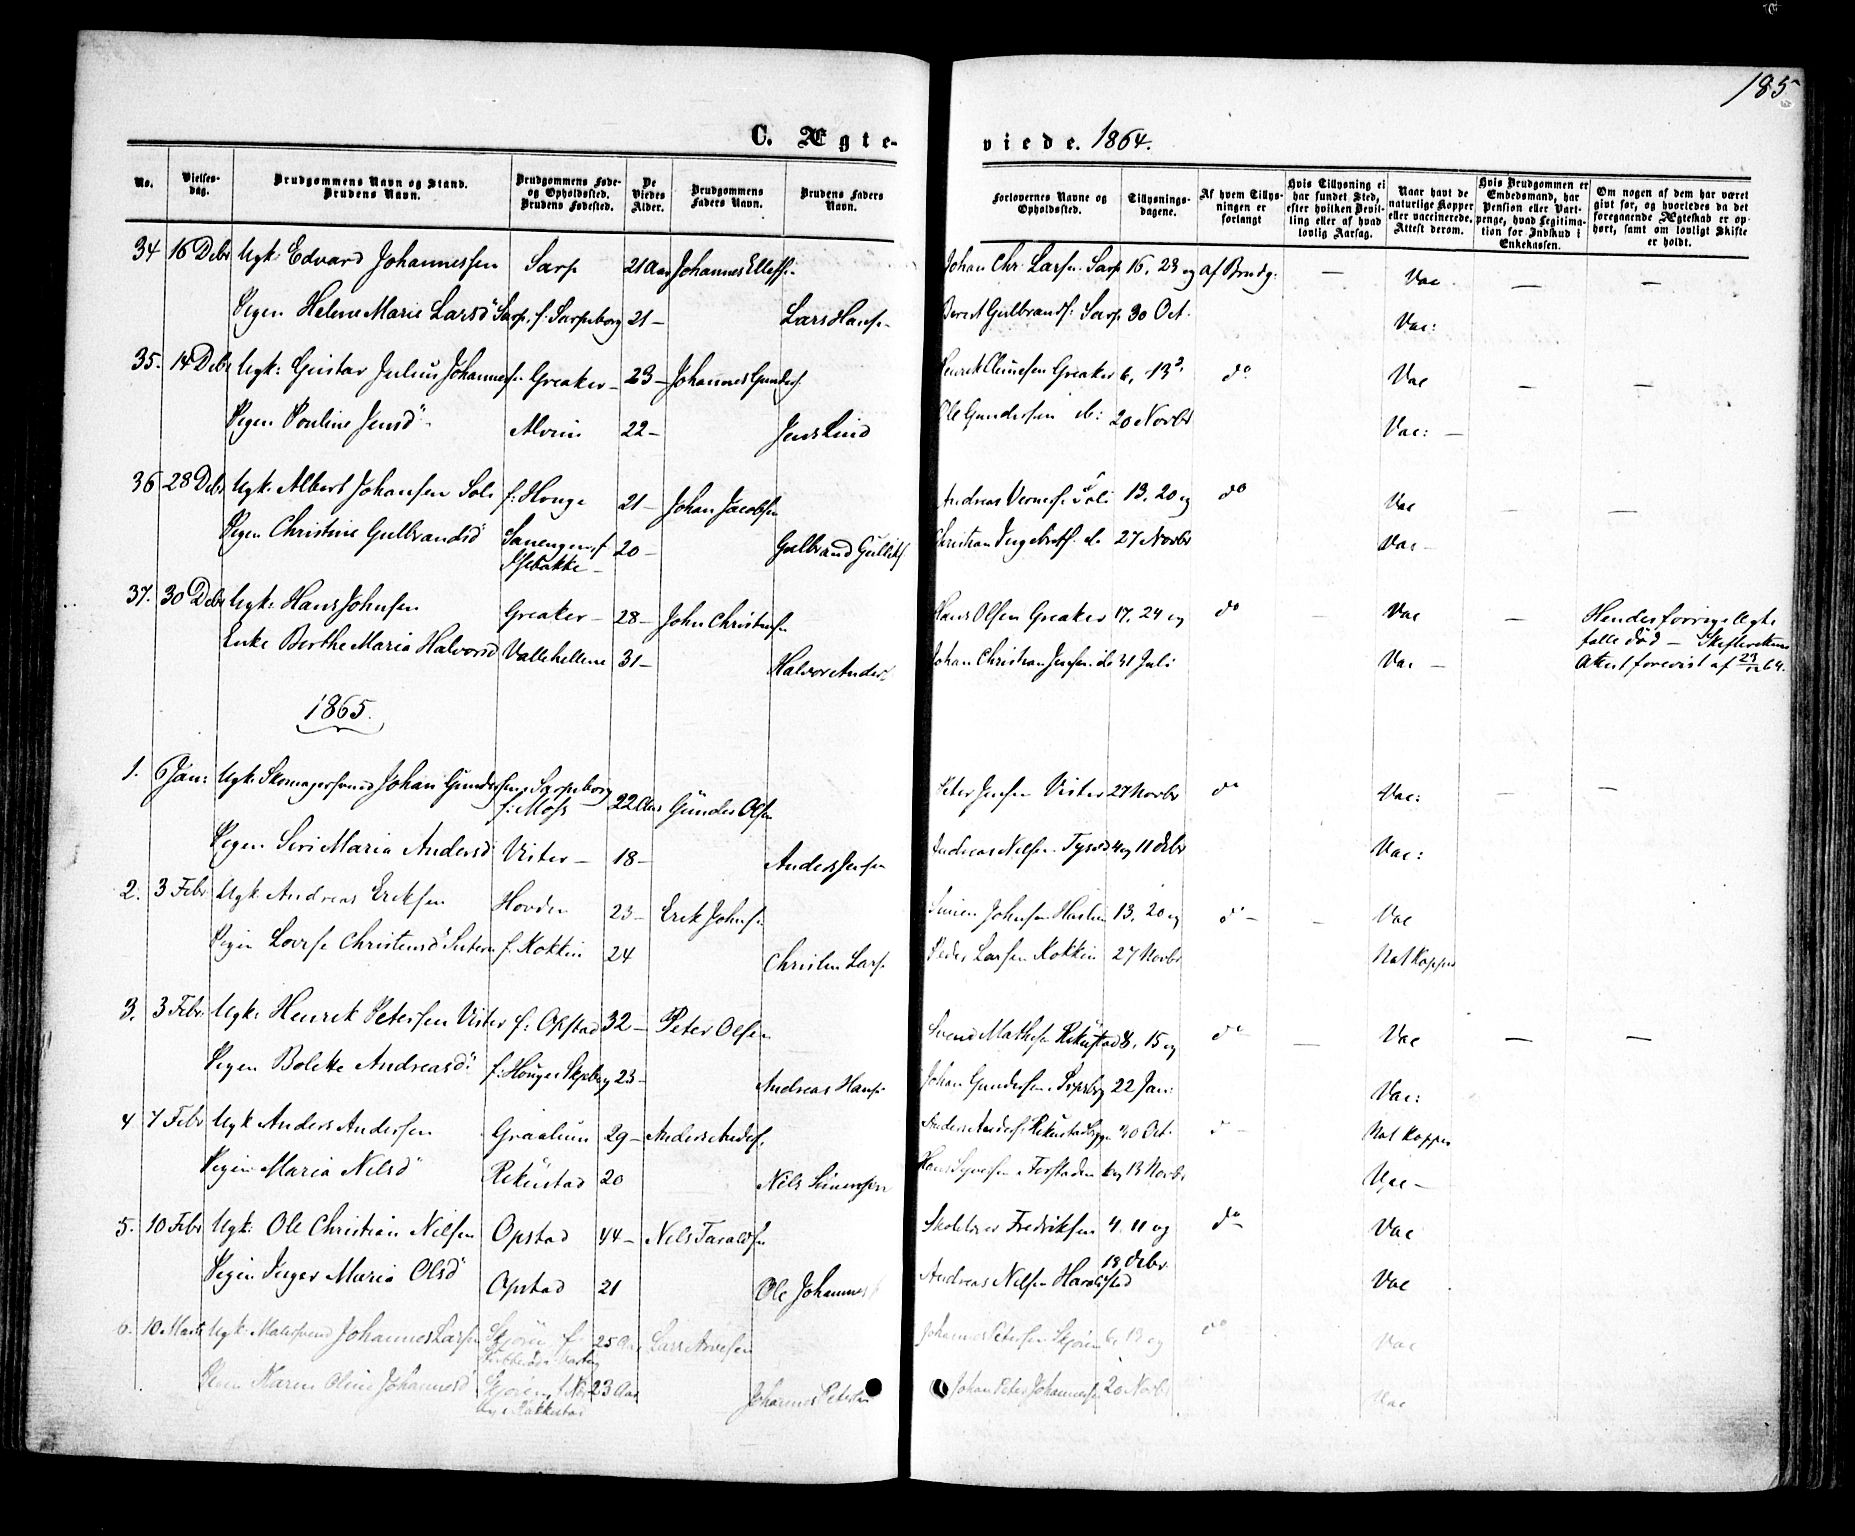 185
C. Ægte- viede. 1864.
No. Vielses-dag. Brudgommens Navn og Stand. Brudens Navn. Brudgommens Føde- og Opholdssted. Brudens Fødested. De Viedes Alder. Brudgommens Faders Navn. Brudens Faders Navn. Forlovernes Navne og Opholdssted. Tillysnings-dagene. Af hvem Tillysningen er forlangt Hvis Tillysning ei har fundet Sted, efter hvilken Bevilling eller af hvad lovlig Aarsag. Naar havt de naturlige Kopper eller vaccinerede. Attest derom. Hvis Brudgommen er Embedsmand, har Pension eller Vartpenge, hvad Legitimation for Indskud i Enkekassen. Om nogen af dem har været gift før, og hvorledes da det foregaaende Ægteskab er ophørt, samt om lovligt Skifte er holdt.
34 16 Debr Ugk: Edvard Johannessen Sarp 21 Aar Johannes Ellefs. Johan Chr: Larsen Sarp 16, 23 og af Brudg: — Vac — —
Pigen Helene Marie Larsd Sarp, f. Sarpsborg 21 — Lars Hans. Berent Gulbrands: Sarp 30 Oct. Vac:
35. 14 Debr Ugk: Gustav Julius Johannesen Greaker — 23 — Johannes Gunders. Henrik Clemesen Greaker 6, 13 do Vac — —
Pigen Pouline Jensd Alvim 22 — Jens Lind Ole Gundersen do: 20 Novbr Vac: —
36 28 Debr Ugk: Albert Johansen Soli f: Houge 21 — Johan Jacobsen Andreas Vernes. Soli 13, 20 og do Vac — —
Pigen Christine Gulbrandsd Sanengen f. 20 — Gulbrand Gulliks Christian Ingebrets. do 27 Novbr Vac —
Isebakke —
37. 30 Debr Ugk: Hans Johnsen Greaker — 28 — John Christensen Hans Olsen Greaker 17, 24 og do — Vac — Hendes forrige Ægte
Enke Berthe Maria Halvorsd Vallehellene 31 — Halvor Anders. Johan Christian Jensen do 31 Juli Vac — fælle død — Skifterettens
Attest forevist af 23/12 64.
1865.
1. 6 Jan: Ugk: Skomagersvend Johan Gundersen Sarpsborg f: Moss 22 Aar Gunder Olsen Peter Jensen Vister 27 Novbr do Vac: — —
Pigen Siri Maria Andersd Vister — 18 — Anders Jensen Andreas Nilsen Tysvd 4 og 11 Debr Vac:
2. 3 Febr Ugk Andreas Eriksen Hovde 23 — Erik Johns. Simen Johnsen Haslen 13, 20 og do — — Vac
Pigen Lovise Christensd f. Kokkin 24 Christen Lars. Peder Larsen Kokkin 27 Novbr Nat Kopper
3. 3 Febr. Ugk: Henrik Petersen Vister f: Opstad 32 — Peter Olsen Svend Mathesen Rekustad 8, 15 og do — Vac — —
Pigen Bolette Andreasd: f. Houge Skjeberg 23 — Andreas Hans. Johan Gundersen Srpsbg 22 Jan: Vac:
4 7 Febr Ugk Anders Andersen Graalum 29 — Anders Anders. Anders Anders. Rekustadbygn 30 Oct. do — Nat Kopper
Pigen Maria Nilsd Rekustad 20 Nils Simensen Hans Syversen Torstaden 6 og 13 Novbr Vac —
5. 10 Febr Ugk: Ole Christian Nilsen Opstad 44 — Nils Taraldsen Skolelærer Fredriksen 4, 11 og do Vac
18 Debr
Pigen Inger Maria Olsd Opstad 21 Ole Johannes. Andreas Nilsen Haralsstad Vac
6. 10 Marts Ugk: Malersvend Johannes Larsen Skjøren f. 25 Aar Lars Arvesen Johannes Petersen Skjøren 6, 13 og do Vac
Pigen Karen Oline Johannesd Skjøren, f. 23 Aar Johannes Petersen Johan Peter Johannesen 20 Novbr Vac
Rakkestad